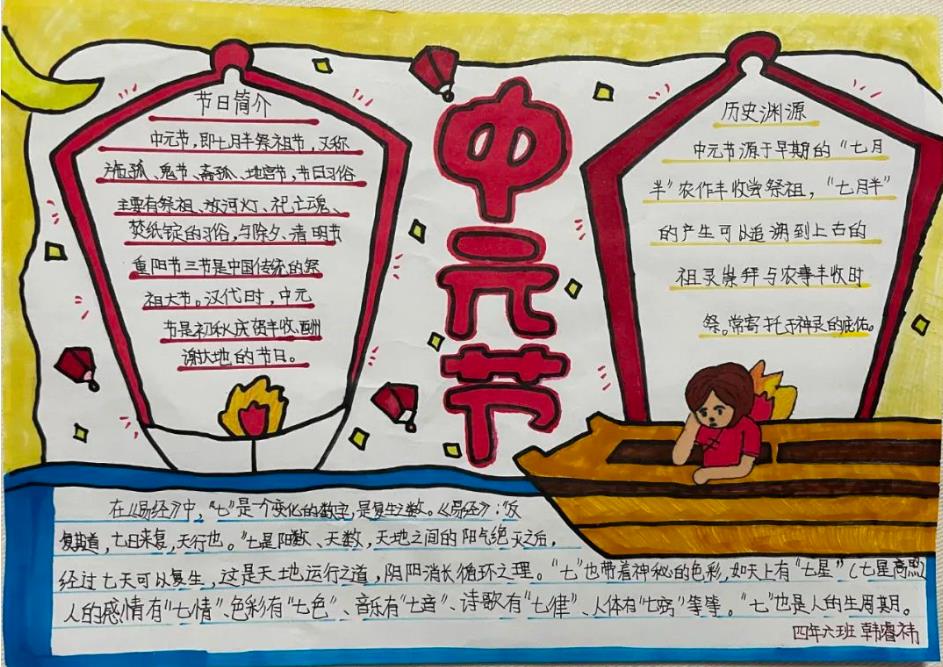 中元节
节日简介
中元节，即七月半祭祖节，又称
施孤、鬼节、斋孤、地官节，节日习俗
主要有祭祖、放河灯、祀亡魂、
焚纸锭的习俗，与除夕、清明节
重阳节三节是中国传统的祭
祖大节。汉代时，中元
节是初秋庆贺丰收、酬
谢大地的节日。
历史渊源
中元节源于早期的“七月
半”农作丰收尝祭祖，“七月半”
的产生可以追溯到上古的
祖灵崇拜与农事丰收时
祭。常寄托于神灵的庇佑。
在《易经》中，“七”是一个变化的数字，是复生之数。《易经》：“反
复其道，七日来复，天行也。”七是阳数、天数，天地之间的阳气绝灭之后，
经过七天可以复生，这是天地运行之道，阴阳消长循环之理。“七”也带着神秘的色彩，如天上有“七星”（七星高照
人的感情有“七情”、色彩有“七色”、音乐有“七音”、诗歌有“七律”、人体有“七窍”等等。“七”也是人的生周期月。
四年六班 韩睿祎